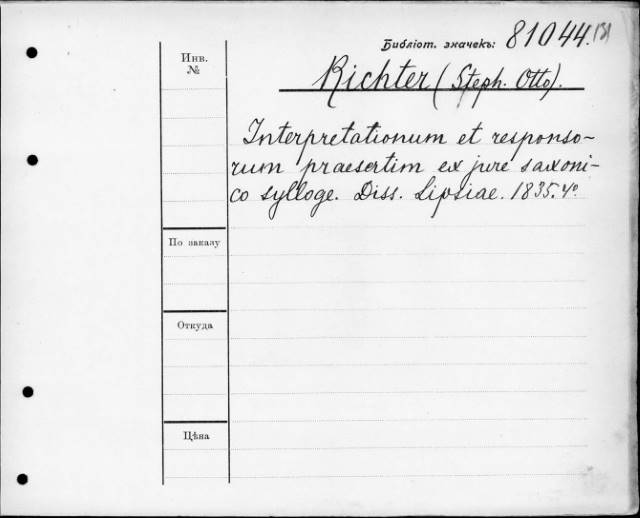 Библіот. значекъ: 81044.131
Инв.
№
Richter (Steph. Otto).
Interpretationum et responso-
rum praesertim ex jure saxoni-
co sylloge. Diss. Lipsiae. 1835. 4º
По заказу
Откуда
Цѣна